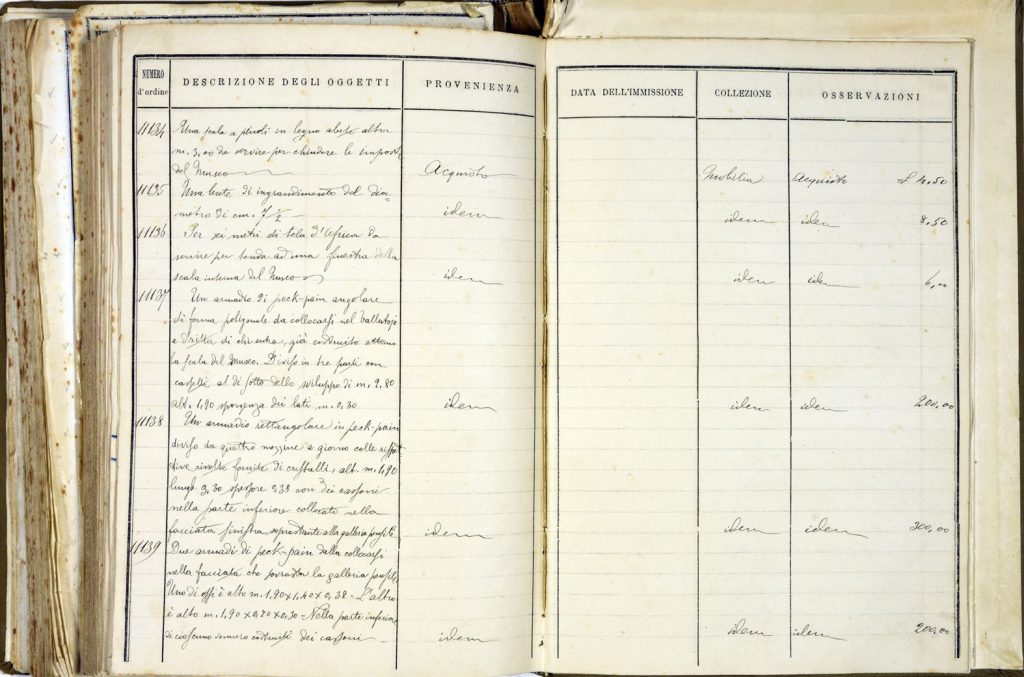 NUMERO d'ordine
DESCRIZIONE DEGLI OGGETTI
PROVENIENZA
DATA DELL'IMMISSIONE
COLLEZIONE
OSSERVAZIONI
11134 Una scala a piuoli in legno abete
m. 3,00 da servire per chiudere le imposte
del Museo Acquisto Mobilia Acquisto £ 4,50
11135 Una lente di ingrandimento del dia=
metro di cm. 7 ½ idem idem idem 8,50
11136 Per sei metri di tela d'Africa da
servire per tenda ad una finestra della
scala interna del Museo idem idem idem 6,00
11137 Un armadio di peck-pain angolare
di forma poligonale da collocarsi nel ballatojo
a dritta di chi entra, già costruito attorno
la scala del Museo. Diviso in tre parti con
al di sotto dello sviluppo di m. 2,80
alt. 1,90 sporgenza dei lati m. 0,30 idem idem idem 200,00
11138 Un armadio rettangolare in peck-pain
diviso da quattro a giorno colle rispet
tive fornite di cristalli, alt. m. 1,90
lungh. 3,30 spessore 0,38 con dei cassoni
nella parte inferiore collocato nella
facciata sinistra soprastante alla galleria pensile idem idem idem 300,00
11139 Due armadi di peck-pain collocarsi
nella facciata che sovrasta la galleria pensile
Uno di essi è alto m. 1,90 x 1,40 x 0,38 - L'altro
è alto m. 1,90 x 0,70 x 0,30 - Nella parte inferiore
di ciascuno costruiti dei cassoni idem idem idem 200,00